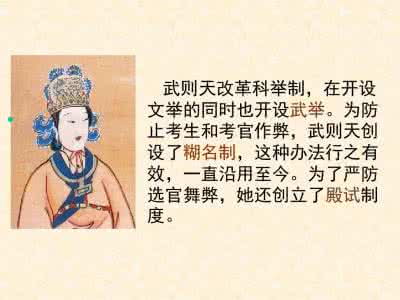 武则天改革科举制，在开设
文举的同时也开设武举。为防
止考生和考官作弊，武则天创
设了糊名制，这种办法行之有
效，一直沿用至今。为了严防
选官舞弊，她还创立了殿试制
度。